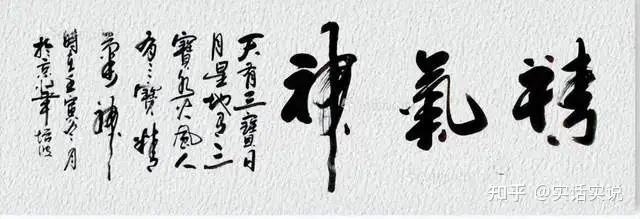 精氣神
天有三寶日
月星地有三
寶水火風人
有三寶精
氣神
時在壬寅冬月
於京
知乎 @实话实说